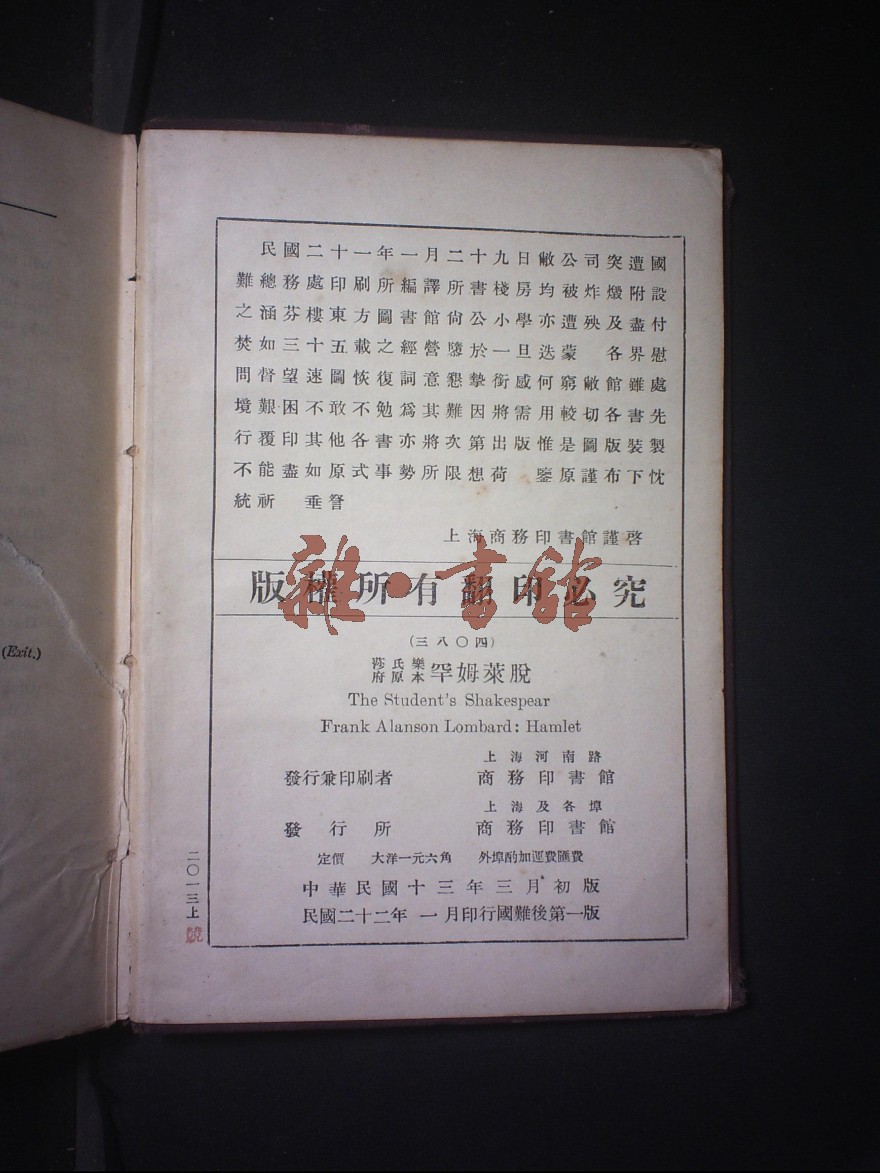 (Exit.)
民國二十一年一月二十九日敝公司突遭國
難總務處印刷所編譯所書棧房均被炸燬附設
之涵芬樓東方圖書館尙公小學亦遭殃及盡付
焚如三十五載之經營隳於一旦迭蒙 各界慰
問督望速圖恢復詞意懇摯銜感何窮敝館雖處
境艱困不敢不勉爲其難因將需用較切各書先
行覆印其他各書亦將次第出版惟是圖版裝製
不能盡如原式事勢所限想荷 鑒原謹布下忱
統祈 垂詧
上海商務印書館謹啓
版權所有翻印必究
雜·書館
(三八〇四)
莎氏樂府原本 罕姆萊脫
The Student's Shakespear
Frank Alanson Lombard: Hamlet
上海河南路
發行兼印刷者 商務印書館
上海及各埠
發行所 商務印書館
定價 大洋一元六角 外埠酌加運費匯費
中華民國十三年三月初版
民國二十二年一月印行國難後第一版
二〇一三上